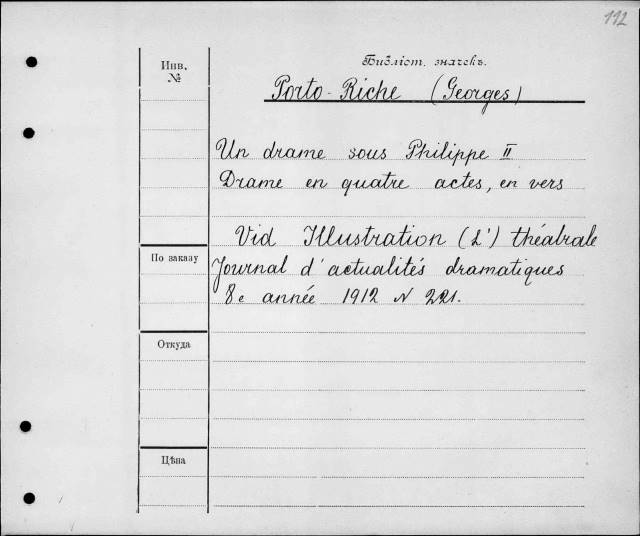 112
Инв.
№
Библіот. значекъ.
Porto-Riche (Georges)
Un drame sous Philippe II
Drame en quatre actes, en vers
Vid Illustration (L') théâtrale
По заказу
Journal d'actualités dramatiques
8e année 1912 N 221.
Откуда
Цѣна